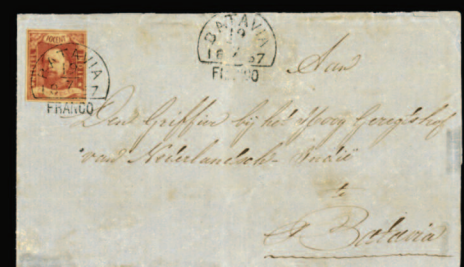 BATAVIA
FRANCO
BATAVIA
FRANCO
Aan
Den Griffier bij het Hoog Geregtshof
van Nederlandsch Indië
te
Batavia